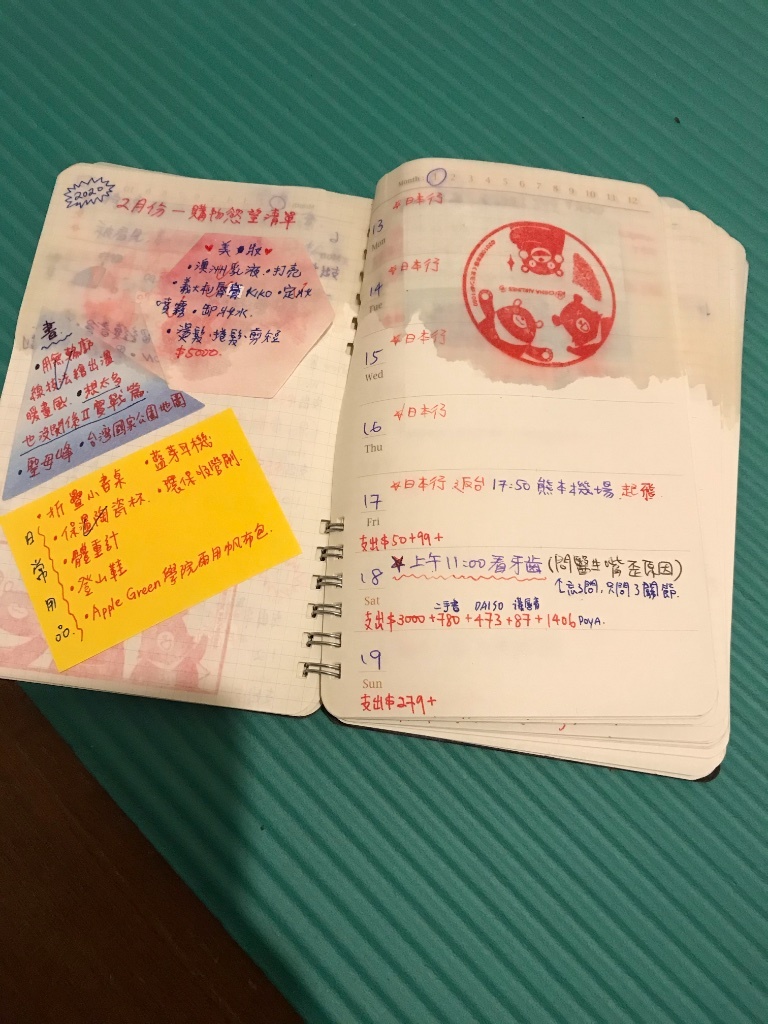 2020
2月份一購物慾望清單
♥美妝♥
•澳洲乳液•打亮
•義大利 KIKO•定妝
噴霧•卸妝水
•燙髮•捲髮•剪短
$5000.
書
•用
線技法繪出溫
暖畫風•想太多
也沒關係II實戰篇
•聖母峰•台灣國家公園地圖
日常用品
•折疊小書桌 •藍芽耳機
•保溫陶瓷杯 •環保吸管刷
•體重計
•登山鞋
•Apple Green學院兩用帆布包
Month 1 2 3 4 5 6 7 8 9 10 11 12
13 Mon
☆日本行
14 Tue
☆日本行
CHINA AIRLINES
15 Wed
☆日本行
16 Thu
☆日本行
17 Fri
☆日本行 返台 17:50 熊本機場 起飛
支出$50+99+
18 Sat
★上午11:00看牙齒(問醫生嘴歪原因)
↑忘了問,只問了關節
二手書 DAISO
支出$3000+780+473+87+1406 POYA.
19
Sun
支出$279+